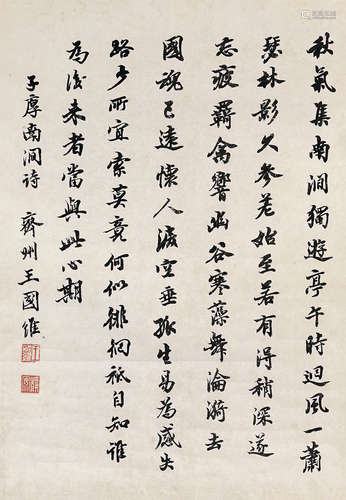 秋氣集南澗獨遊亭午時迴風一蕭
瑟林影久参差始至若有得稍深遂
忘疲羈禽響幽谷寒藻舞淪漪去
國魂已遠懷人淚空垂孤生易為感失
路少所宜索莫竟何似徘徊祗自知誰
為後来者當與此心期
子厚南澗詩 齊州王國維